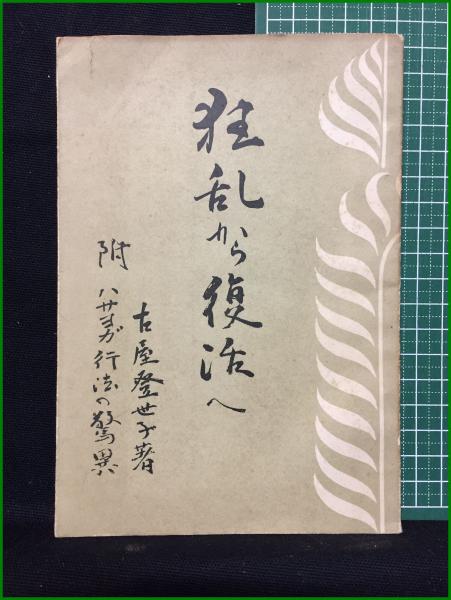 狂乱から復活へ
古屋登世子著
附 ハサヨガ行法の驚異